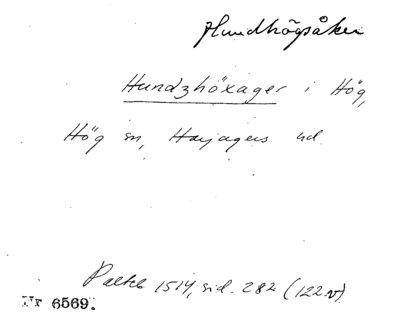 Hundhögsåker
Hundzhöxager i Hög,
Hög sn, Harjagers hd
Palteb 1514, sid. 282 (122 v)
Nr 6569.